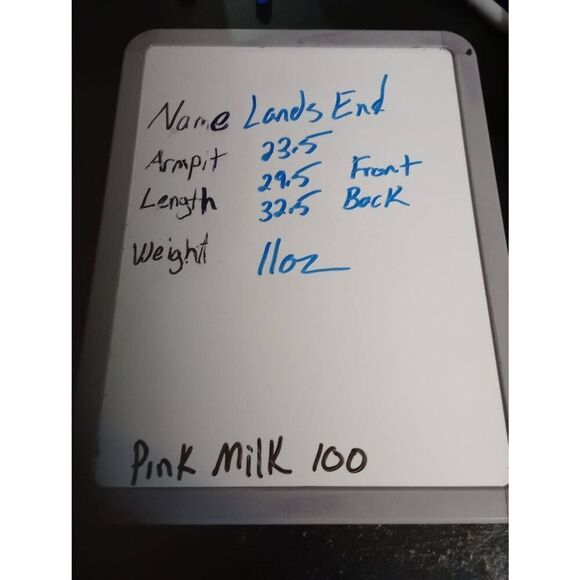 Name Lands End
Armpit 23.5
29.5 Front
Length 32.5 Back
Weight 11oz
Pink Milk 100